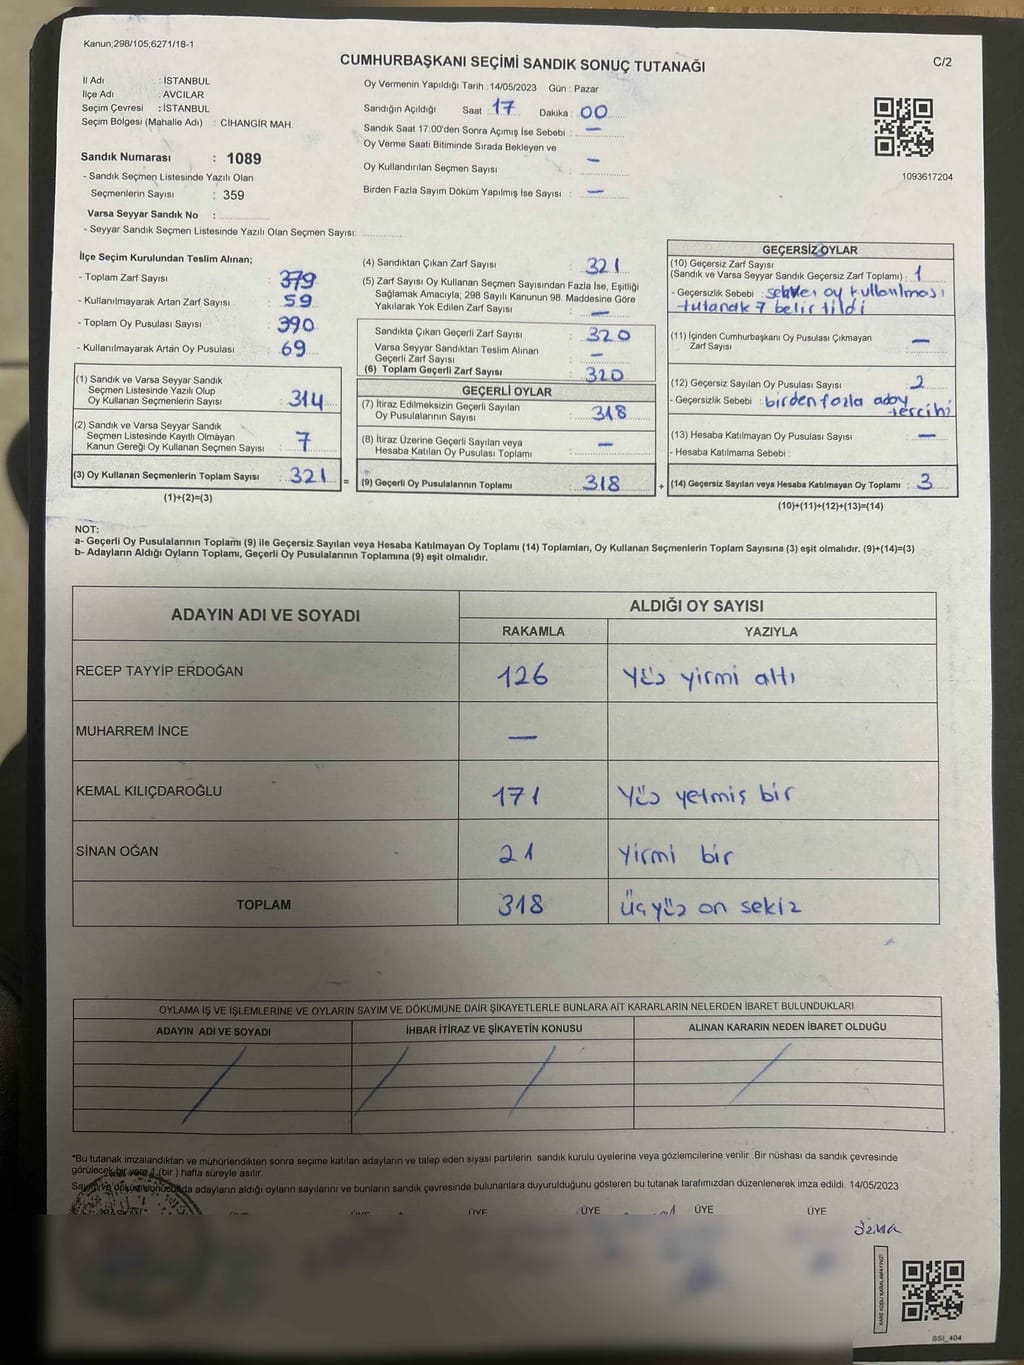 Kanun;298/105,6271/18-1
CUMHURBAŞKANI SEÇİMİ SANDIK SONUÇ TUTANAĞI
C/2
İl Adı : İSTANBUL
İlçe Adı : AVCILAR
Seçim Çevresi : İSTANBUL
Seçim Bölgesi (Mahalle Adı) : CİHANGİR MAH.
Sandık Numarası : 1089
- Sandık Seçmen Listesinde Yazılı Olan
Seçmenlerin Sayısı : 359
Varsa Seyyar Sandık No :
- Seyyar Sandık Seçmen Listesinde Yazılı Olan Seçmen Sayısı:
Oy Vermenin Yapıldığı Tarih : 14/05/2023 Gün : Pazar
Sandığın Açıldığı Saat : 17 Dakika : 00
Sandık Saat 17:00'den Sonra Açımış İse Sebebi : —
Oy Verme Saati Bitiminde Sırada Bekleyen ve
Oy Kullandırılan Seçmen Sayısı : —
Birden Fazla Sayım Döküm Yapılmış İse Sayısı : —
1093617204
İlçe Seçim Kurulundan Teslim Alınan;
- Toplam Zarf Sayısı : 379
- Kullanılmayarak Artan Zarf Sayısı : 59
- Toplam Oy Pusulası Sayısı : 390
- Kullanılmayarak Artan Oy Pusulası : 69
(1) Sandık ve Varsa Seyyar Sandık
Seçmen Listesinde Yazılı Olup
Oy Kullanan Seçmenlerin Sayısı : 314
(2) Sandık ve Varsa Seyyar Sandık
Seçmen Listesinde Kayıtlı Olmayan
Kanun Gereği Oy Kullanan Seçmen Sayısı : 7
(3) Oy Kullanan Seçmenlerin Toplam Sayısı : 321 =
(1)+(2)=(3)
(4) Sandıktan Çıkan Zarf Sayısı : 321
(5) Zarf Sayısı Oy Kullanan Seçmen Sayısından Fazla İse, Eşitliği
Sağlamak Amacıyla; 298 Sayılı Kanunun 98. Maddesine Göre
Yakılarak Yok Edilen Zarf Sayısı : —
Sandıkta Çıkan Geçerli Zarf Sayısı : 320
Varsa Seyyar Sandıktan Teslim Alınan
Geçerli Zarf Sayısı : —
(6) Toplam Geçerli Zarf Sayısı : 320
GEÇERLİ OYLAR
(7) İtiraz Edilmeksizin Geçerli Sayılan
Oy Pusulalarının Sayısı : 318
(8) İtiraz Üzerine Geçerli Sayılan veya
Hesaba Katılan Oy Pusulası Toplamı : —
(9) Geçerli Oy Pusulalarının Toplamı : 318 +
GEÇERSİZ OYLAR
(10) Geçersiz Zarf Sayısı
(Sandık ve Varsa Seyyar Sandık Geçersiz Zarf Toplamı) : 1
- Geçersizlik Sebebi : oy kullanılması
tutanak 7 belirtildi
(11) İçinden Cumhurbaşkanı Oy Pusulası Çıkmayan
Zarf Sayısı : —
(12) Geçersiz Sayılan Oy Pusulası Sayısı : 2
- Geçersizlik Sebebi : birden fazla aday
tercihi
(13) Hesaba Katılmayan Oy Pusulası Sayısı : —
- Hesaba Katılmama Sebebi :
(14) Geçersiz Sayılan veya Hesaba Katılmayan Oy Toplamı : 3
(10)+(11)+(12)+(13)=(14)
NOT:
a- Geçerli Oy Pusulalarının Toplamı (9) ile Geçersiz Sayılan veya Hesaba Katılmayan Oy Toplamı (14) Toplamları, Oy Kullanan Seçmenlerin Toplam Sayısına (3) eşit olmalıdır. (9)+(14)=(3)
b- Adayların Aldığı Oyların Toplamı, Geçerli Oy Pusulalarının Toplamına (9) eşit olmalıdır.
ADAYIN ADI VE SOYADI
ALDIĞI OY SAYISI
RAKAMLA YAZIYLA
RECEP TAYYİP ERDOĞAN 126 Yüz yirmi altı
MUHARREM İNCE —
KEMAL KILIÇDAROĞLU 171 Yüz yetmiş bir
SİNAN OĞAN 21 Yirmi bir
TOPLAM 318 Üçyüz on sekiz
OYLAMA İŞ VE İŞLEMLERİNE VE OYLARIN SAYIM VE DÖKÜMÜNE DAİR ŞİKAYETLERLE BUNLARA AİT KARARLARIN NELERDEN İBARET BULUNDUKLARI
ADAYIN ADI VE SOYADI İHBAR İTİRAZ VE ŞİKAYETİN KONUSU ALINAN KARARIN NEDEN İBARET OLDUĞU
*Bu tutanak imzalandıktan ve mühürlendikten sonra seçime katılan adayların ve talep eden siyasi partilerin sandık kurulu üyelerine veya gözlemcilerine verilir .Bir nüshası da sandık çevresinde
görülecek bir yere 1 (bir ) hafta süreyle asılır.
Sayım ve döküm sonucunda adayların aldığı oyların sayılarını ve bunların sandık çevresinde bulunanlara duyurulduğunu gösteren bu tutanak tarafımızdan düzenlenerek imza edildi. 14/05/2023
BAŞKAN ÜYE ÜYE ÜYE ÜYE
KARE KODU KARALAMAYINIZ!
SSI_404